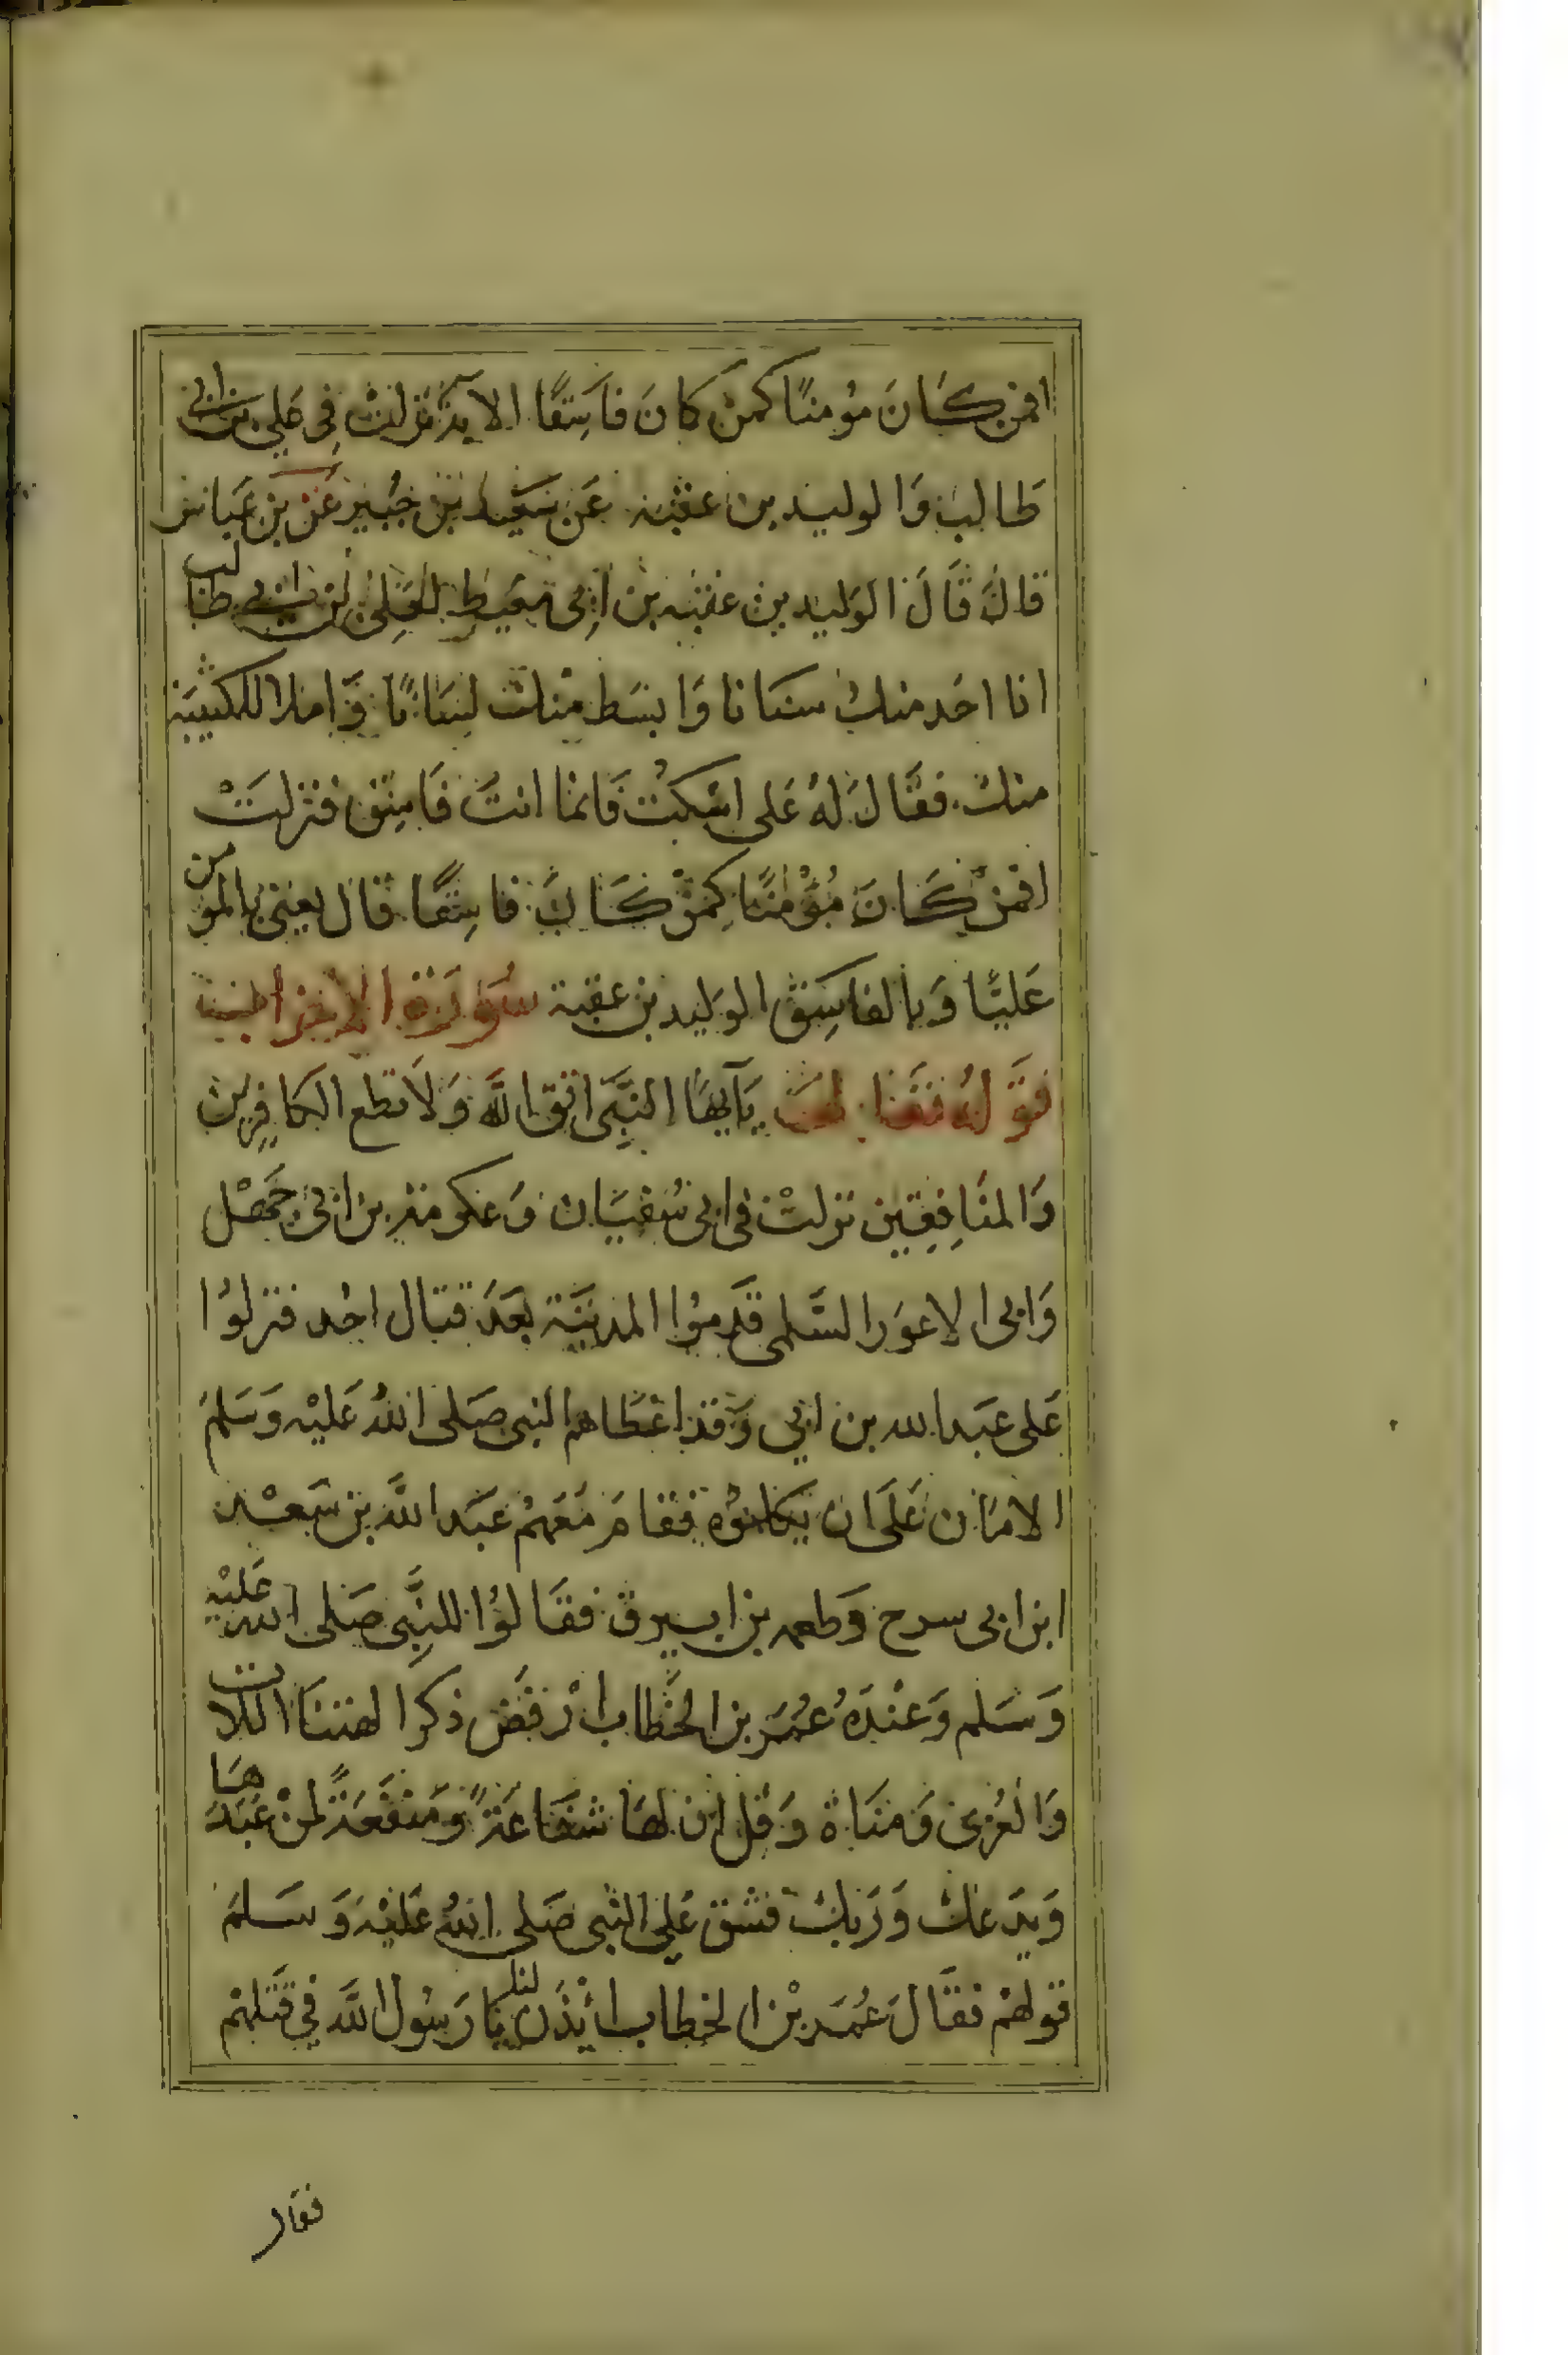 افمن كَانَ مؤمنًا كمن كانَ فاسِقًا الاية نزلت فِي علي بن ابي
طالب وَالوليد بن عقبة عَن سَعيد بن جُبير عَن بن عَباس
قالَ قَالَ الوَليد بن عقبه بن ابي معَيط لعَلي بن ابي طالب
انا احَد منك سنَانا وَابسَط منك لسَانًا وَاملا للكتيبَة
منك. فقَالَ لهُ عَلى اسْكُت فَانما انتَ فَاسِق فنزلَتْ
افمنْ كَانَ مُؤْمنًا كمَنْ كَانَ فاسِقًا قال يعني بالمومن
عَليًا وَبالفاسِق الوَليد بن عقبة سُوْرَة الاحزاب
قوَلهُ تعَالى يَآيهَا النبَّى اتق الله وَلَا تطع الكافِرِين
وَالمنَافِقِين نزلتْ في ابى سُفيَان وَعكرمة بن ابي جَهْل
وَابى الاعوَر السَّلمى قدِموُا المدينَة بعَدَ قتال احُد فنزلوُا
عَلى عبَد الله بن ابي وَقد اعْطَاهم النبى صَلى اللهُ عَليْه وَسَلمَ
الامَان عَلَى ان يكلموُه فقامَ مَعَهُمْ عبَد الله بن سَعْد
ابن ابى سرح وَطعمه بن ابيرق فقَالوُا للنبِّى صَلى الله عَليْه
وَسَلم وَعنْدَهُ عُمَر بن الخَطاب ارْفضَ ذكر الهتنَا اللات
وَالعُزى وَمنَاة وَقل ان لهَا شفَاعَةً وَمنفَعَةً لمنْ عَبَدَهَا
وَيدَعك وَرَبك فشق عَلى النبى صَلى اللهُ عَليْه وَسَلمَ
قولهمْ فقَالَ عُمَر بْن الخطاب ائذَن لنا يَا رَسُول الله في قتَلهمْ
فقال